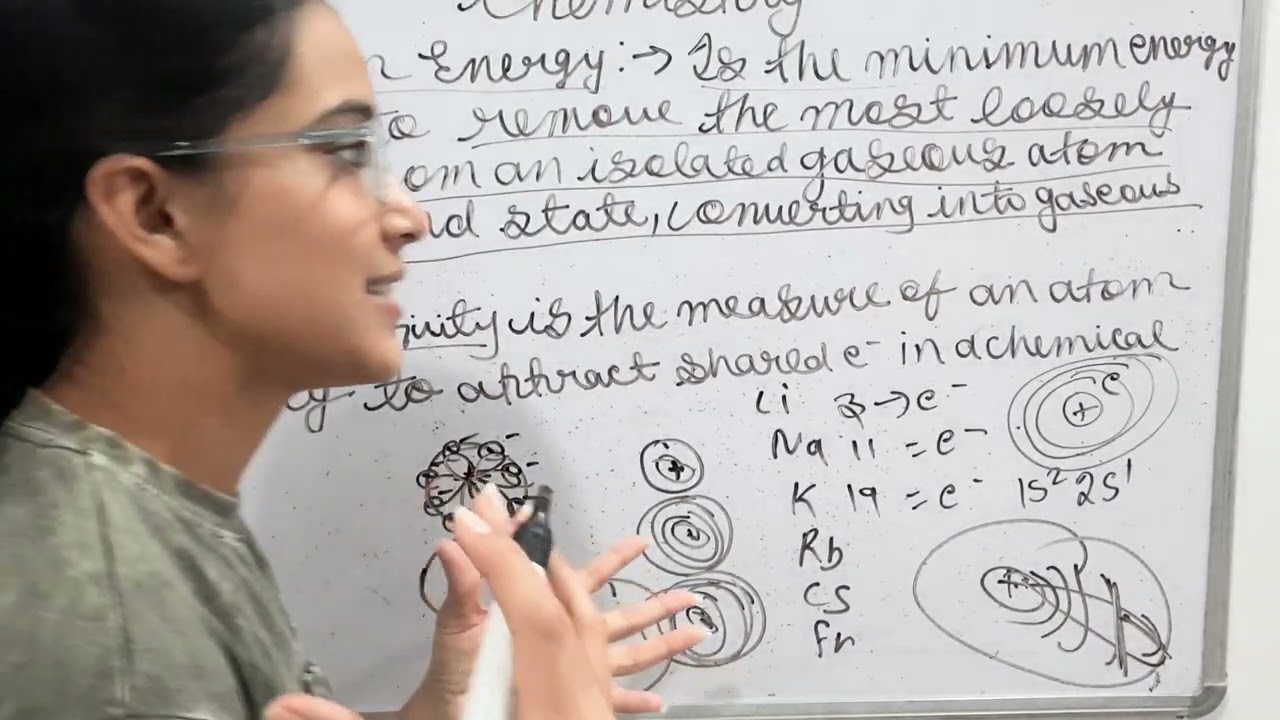 Chemistry
n Energy:→ Is the minimum energy
to remove the most loosely
om an isolated gaseous atom
nd state, converting into gaseous
ivity is the measure of an atom
y to attract shared e⁻ in a chemical
Li 3 → e⁻
Na 11 = e⁻
K 19 = e⁻ 1S² 2S¹
Rb
Cs
Fr